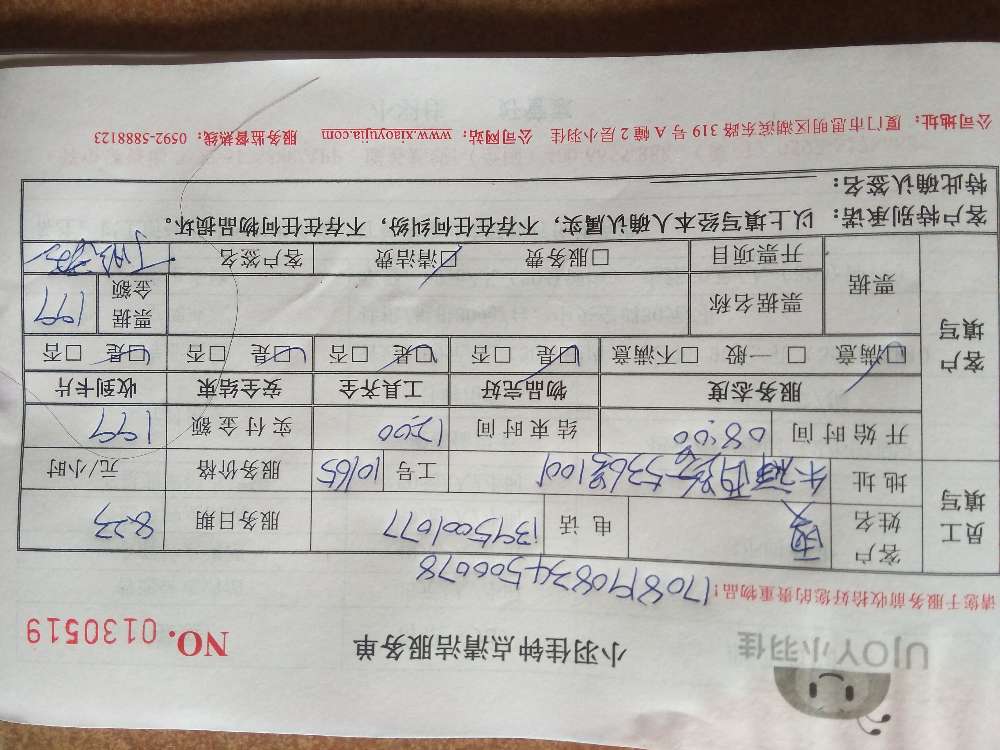 UJOY小羽佳 小羽佳钟点清洁服务单 NO. 0130519
请您于服务前收拾好您的贵重物品! 1708190834500078
员工填写 客户姓名 电话 1395001077 服务日期 8.23
地址 工号 10165 服务价格 元/小时
开始时间 08:00 结束时间 12:00 实付金额 199
客户填写 服务态度 物品完好 工具齐全 安全结束 收到卡片
☑满意 □一般 □不满意 ☑是 □否 ☑是 □否 ☑是 □否 ☑是 □否
票据 票据名称 票据金额 199
开票项目 □服务费 ☑清洁费 客户签名
客户特别承诺:以上填写经本人确认属实,不存在任何纠纷,不存在任何物品损坏。
特此确认签名:
公司地址:厦门市思明区湖滨东路 319 号 A 幢 2 层小羽佳 公司网站:www.xiaoyujia.com 服务监督热线:0592-5888123